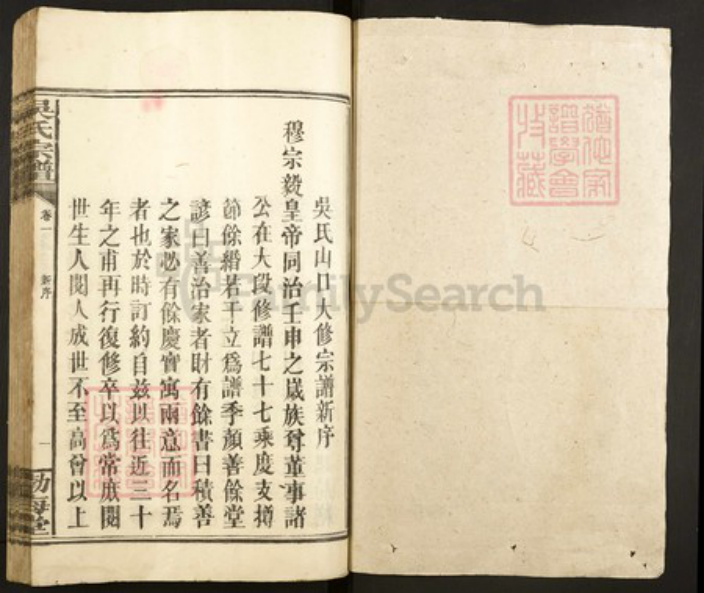 吳氏山口大修宗譜新序
穆宗毅皇帝同治壬申之歲族尊董事諸
公在大段修譜七十七乘慶支撙
節餘緡若干立爲譜季顏善餘堂
諺曰善治家者財有餘書曰積善
之家必有餘慶實寓兩意而名焉
者也於時訂約自兹以往近三十
年之甫再行復修卒以爲常庶閱
世生人閱人成世不至高曾以上
吳氏宗譜
卷一
新序
一
渤海堂
譜學會
收藏
FamilySearch